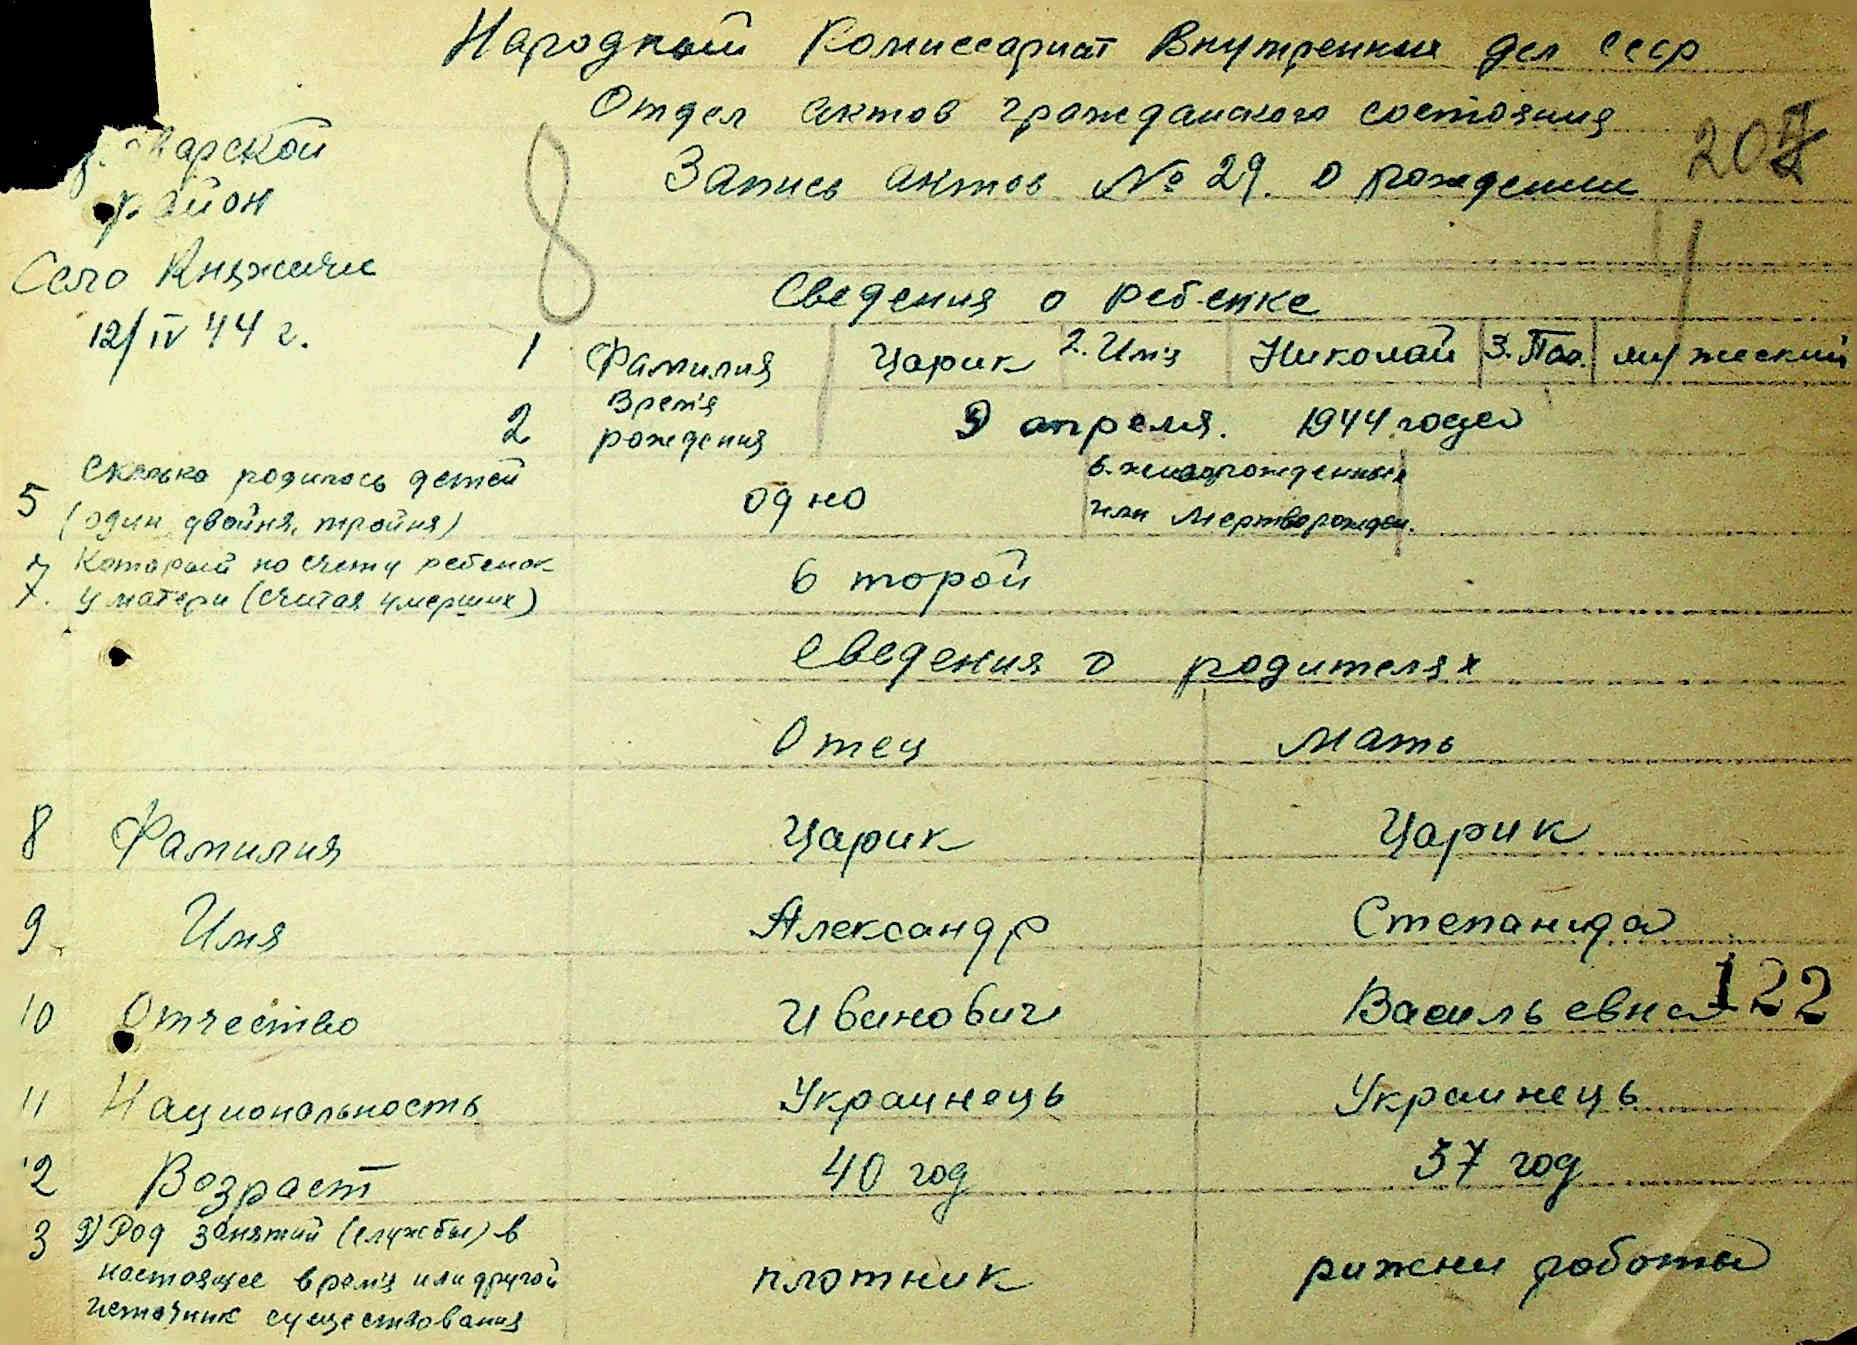 Народный Комиссариат Внутренних дел СССР
Отдел актов гражданского состояния
207
Запись актов № 29. о рождении
8
район
Село Княжичи
12/IV 44 г.
Сведения о ребенке
1 Фамилия Царик 2. Имя Николай 3. Пол. мужеский
2 Врем'я рождения 9 апреля. 1944 года
5 Сколько родилось детей
(один, двойня, тройня) одно 6. живорожденных
или мертворожден.
7. Который по счету ребенок
у матери (считая умерших) второй
Сведения о родителях
Отец Мать
8 Фамилия Царик Царик
9 Имя Александр Степанида
122
10 Отчество Иванович Васильевна
11 Национальность Украинець Украинець
12 Возраст 40 год 37 год
3 а) Род занятий (службы) в
настоящее врем'я или другой
источник существования плотник рижни работы